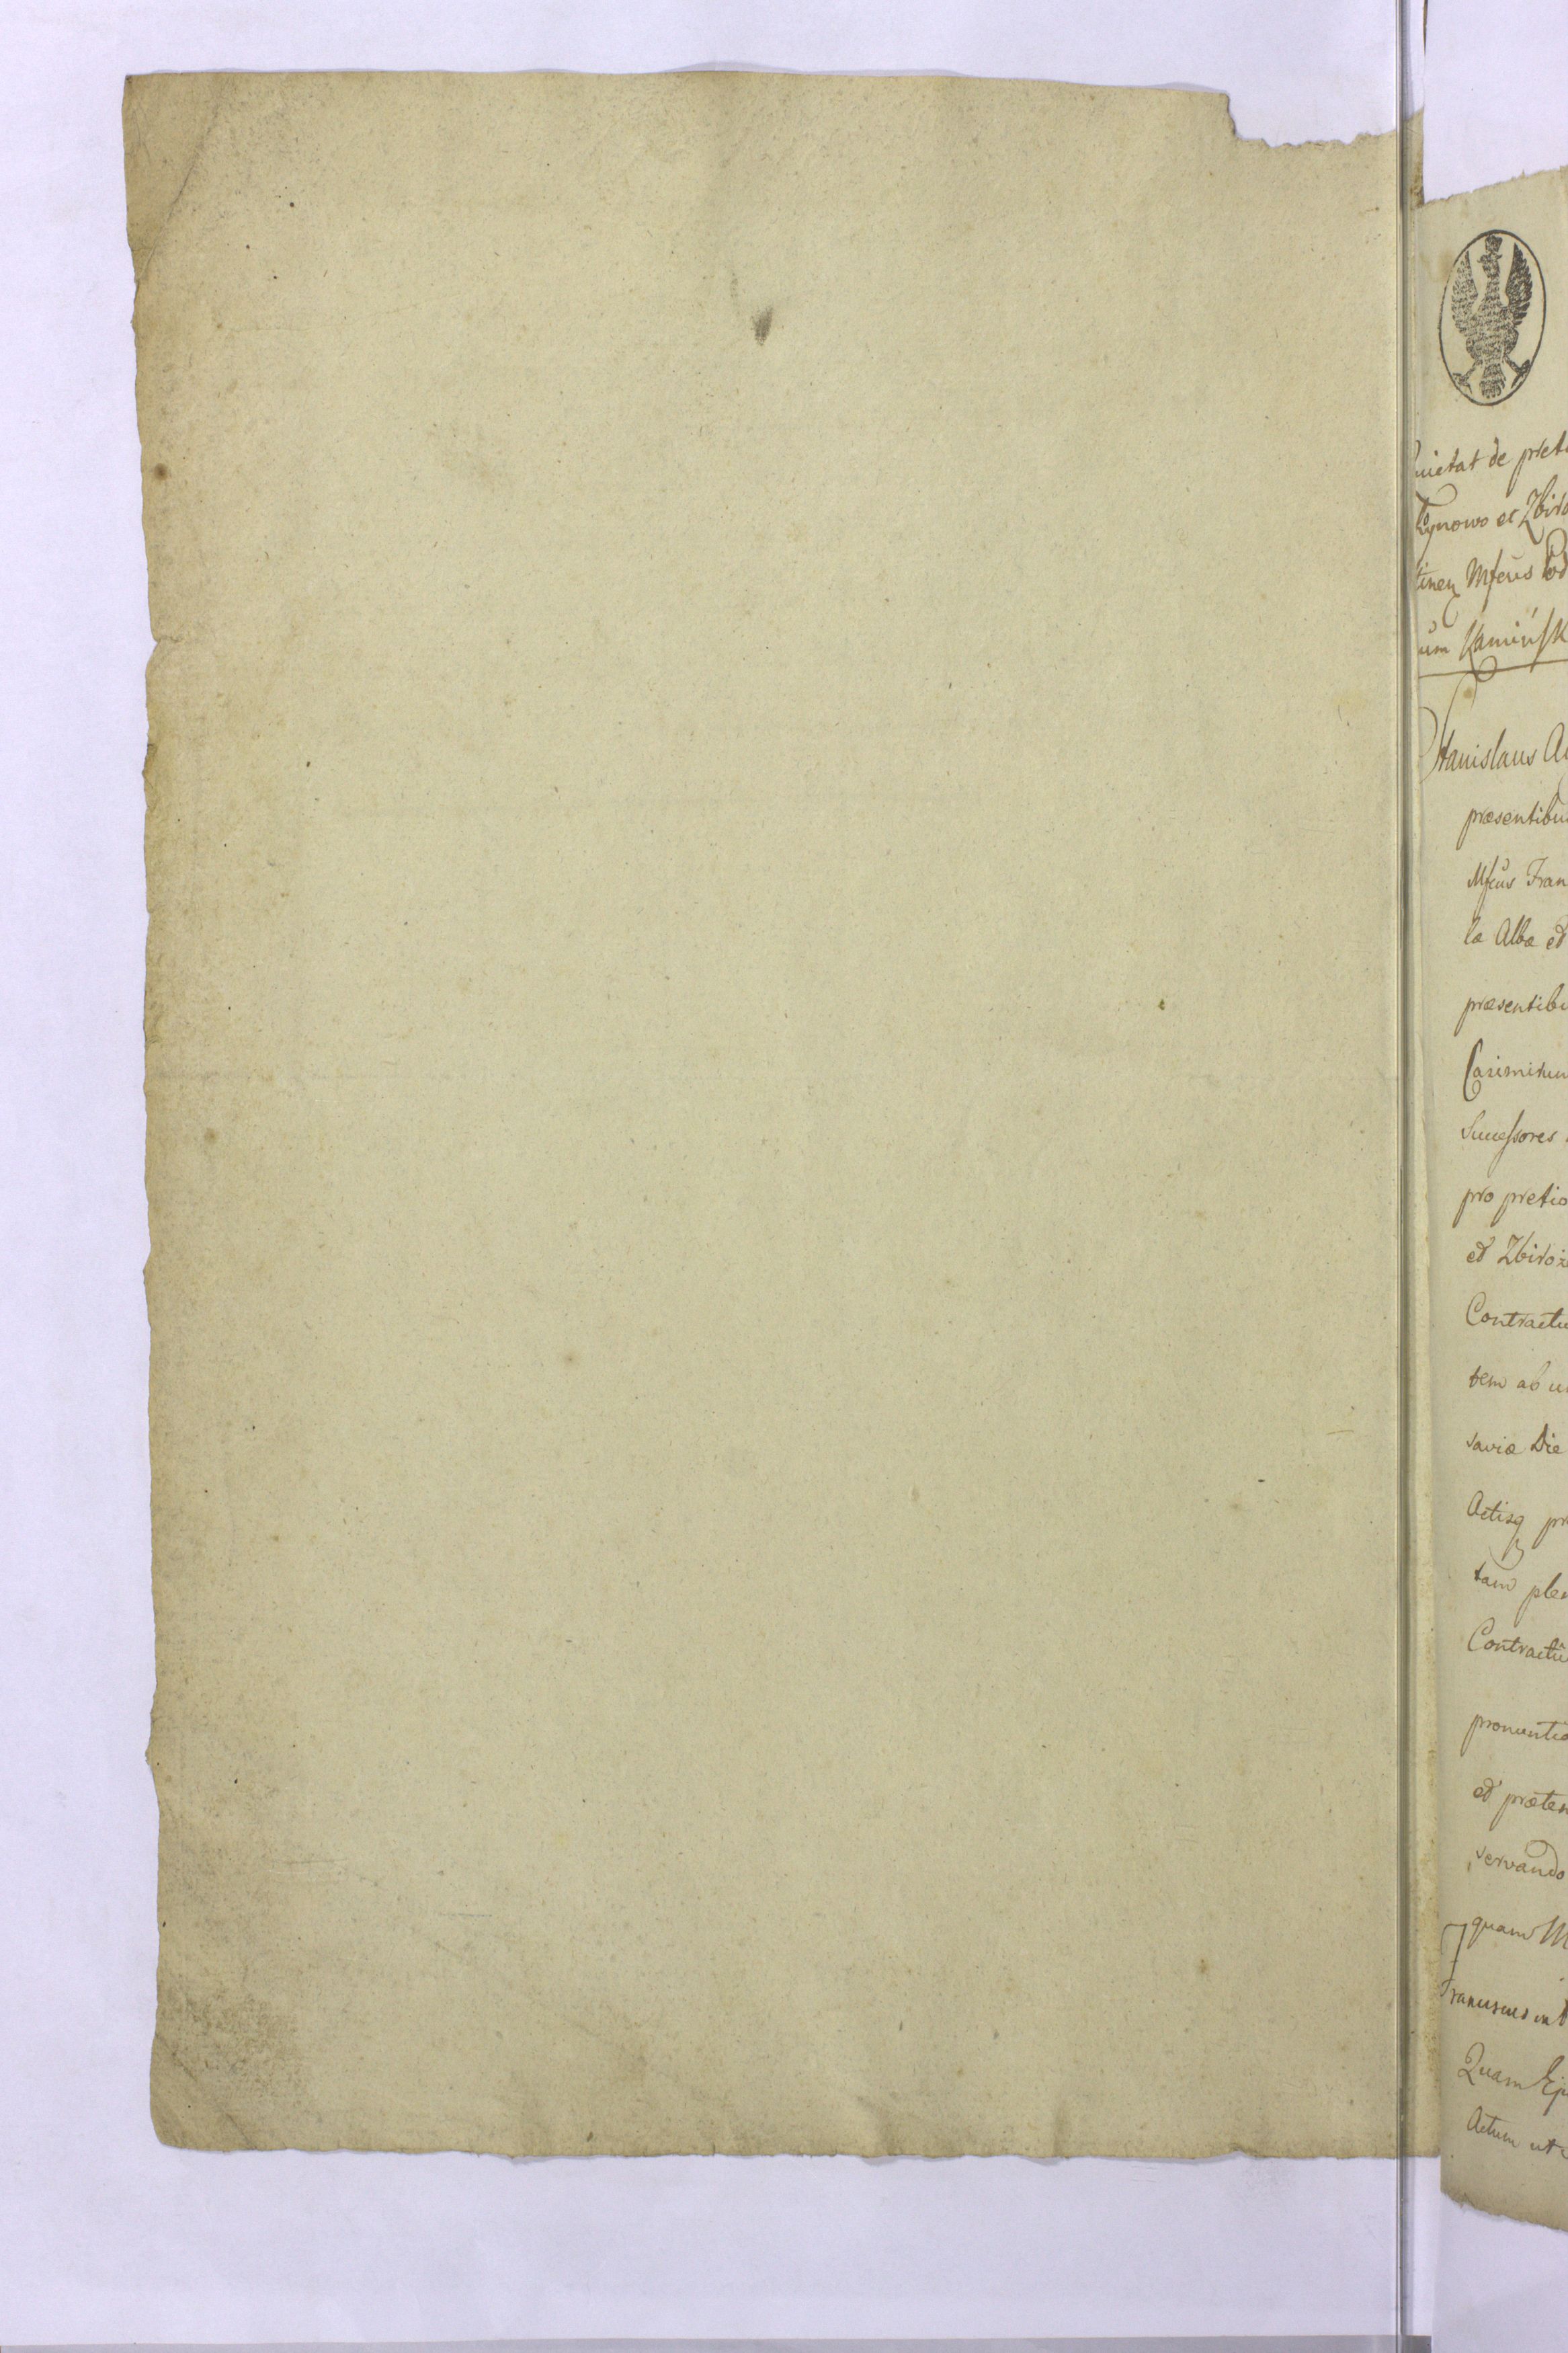 uietat de preti
Tynowo et Zbiro
tinen Mfcus
um Kamińsk
Stanislaus Au
præsentibus
Mfcus Fran
la Alba et
præsentibu
Casimirum
Successores
pro pretio
et Zbiroż
Contractu
tem ab u
saviæ Die
Actisq pr
tam plen
Contractu
pronuntia
et præten
servando
quam M
Franciscus
Quam
Actum ut